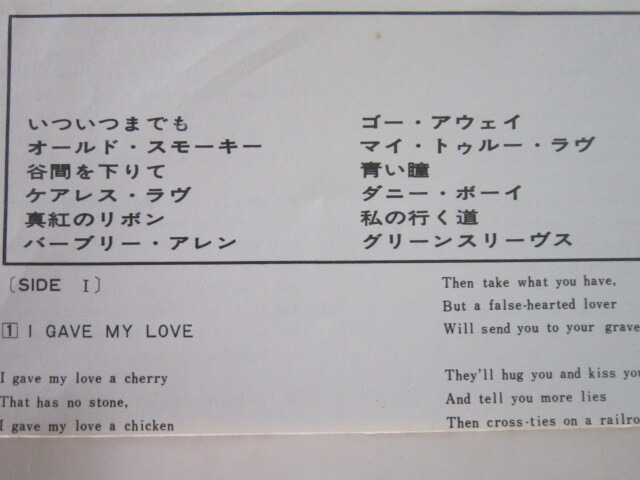 いついつまでも
オールド・スモーキー
谷間を下りて
ケアレス・ラヴ
真紅のリボン
バーブリー・アレン
ゴー・アウェイ
マイ・トゥルー・ラヴ
青い瞳
ダニー・ボーイ
私の行く道
グリーンスリーヴス
〔SIDE Ⅰ〕
1 I GAVE MY LOVE
I gave my love a cherry
That has no stone,
I gave my love a chicken
Then take what you have,
But a false-hearted lover
Will send you to your grave
They'll hug you and kiss you
And tell you more lies
Then cross-ties on a railro